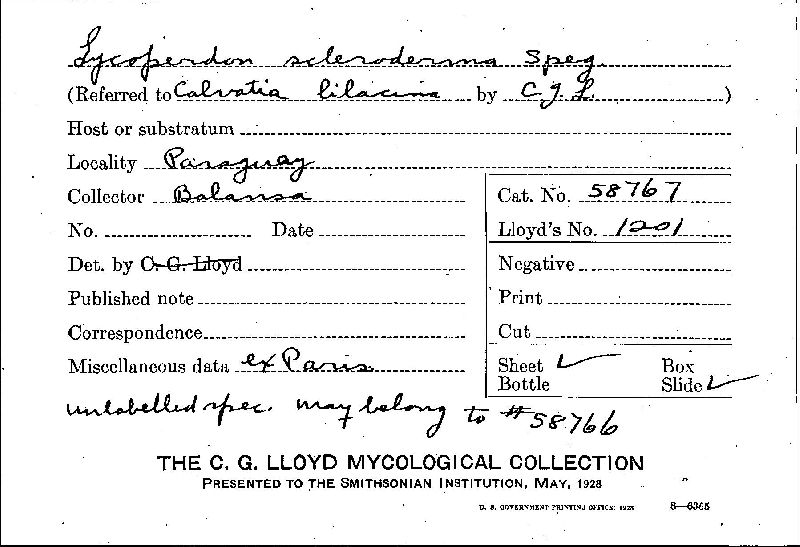 Lycoperdon scleroderma Speg.
(Referred to Calvatia lilacina by C. G. L.)
Host or substratum
Locality Paraguay
Collector Balansa
Cat. No. 58767
No. Date
Lloyd's No. 1201
Det. by C. G. Lloyd
Negative
Published note
Print
Correspondence
Cut
Miscellaneous data ex Paris
Sheet ✓ Box
Bottle Slide ✓
unlabelled spec. may belong to #58766
THE C. G. LLOYD MYCOLOGICAL COLLECTION
PRESENTED TO THE SMITHSONIAN INSTITUTION, MAY, 1928
U. S. GOVERNMENT PRINTING OFFICE: 1928 8—6365